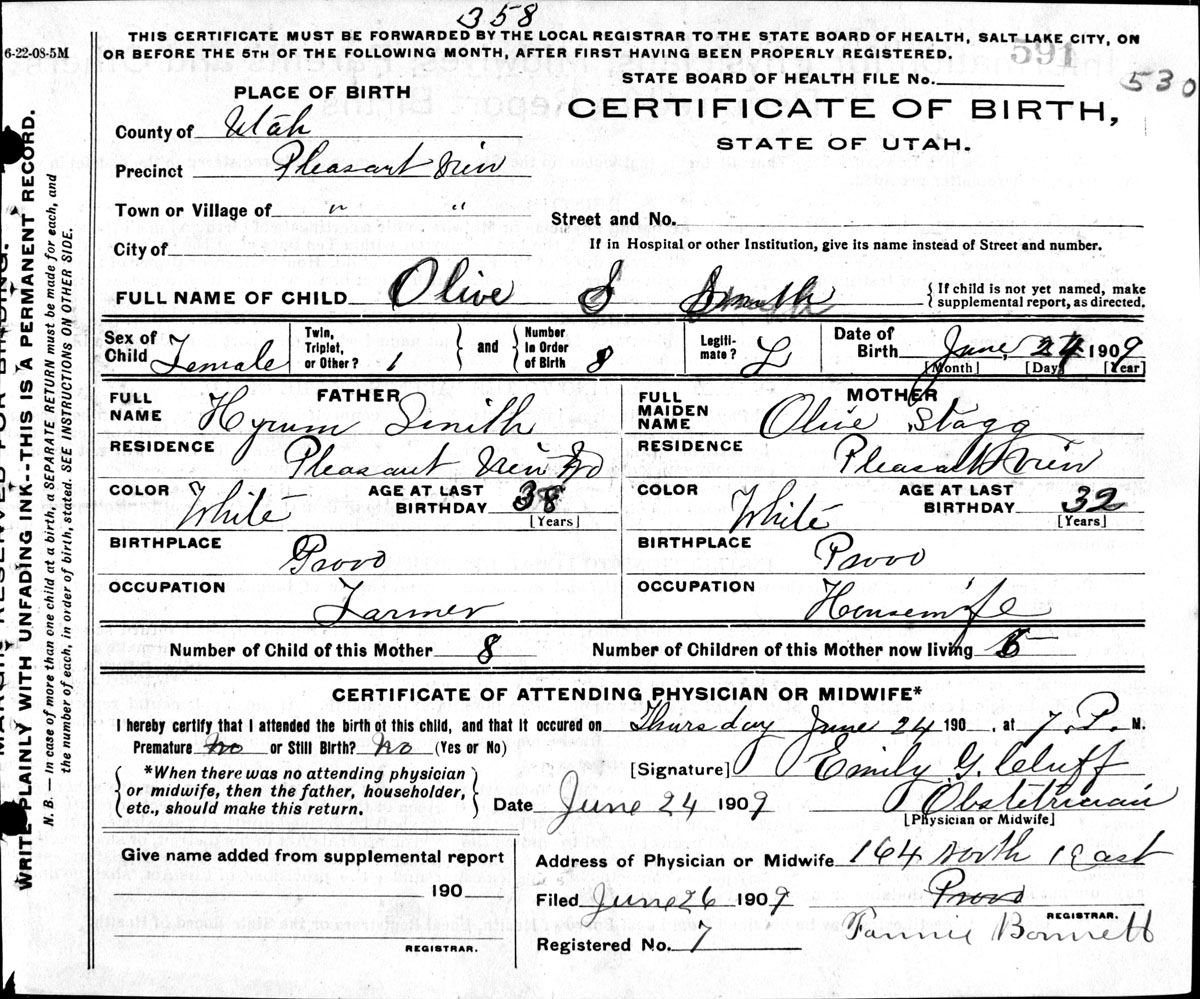 358
THIS CERTIFICATE MUST BE FORWARDED BY THE LOCAL REGISTRAR TO THE STATE BOARD OF HEALTH, SALT LAKE CITY, ON
6-22-08-5M
OR BEFORE THE 5TH OF THE FOLLOWING MONTH, AFTER FIRST HAVING BEEN PROPERLY REGISTERED.
591
STATE BOARD OF HEALTH FILE No.
530
PLACE OF BIRTH
CERTIFICATE OF BIRTH,
STATE OF UTAH.
County of Utah
Precinct Pleasant View
Town or Village of " "
Street and No.
City of
If in Hospital or other Institution, give its name instead of Street and number.
FULL NAME OF CHILD Olive S Smith
{ If child is not yet named, make
supplemental report, as directed.
Sex of Child Female
Twin, Triplet, or Other? 1 } and { Number In Order of Birth 8
Legiti-mate? L
Date of Birth June, 24 1909
[Month] [Day] [Year]
FATHER
FULL NAME Hyrum Smith
RESIDENCE Pleasant View
COLOR White
AGE AT LAST BIRTHDAY 38
[Years]
BIRTHPLACE Provo
OCCUPATION Farmer
MOTHER
FULL MAIDEN NAME Olive Stagg
RESIDENCE Pleasant View
COLOR White
AGE AT LAST BIRTHDAY 32
[Years]
BIRTHPLACE Provo
OCCUPATION Housewife
Number of Child of this Mother 8
Number of Children of this Mother now living
CERTIFICATE OF ATTENDING PHYSICIAN OR MIDWIFE*
I hereby certify that I attended the birth of this child, and that it occured on Thursday June 24 190 . at 7. P. M.
Premature No or Still Birth? No (Yes or No)
[Signature] Emily G. Cluff
{ *When there was no attending physician
or midwife, then the father, householder,
etc., should make this return. }
Date June 24 1909
Obstetrician
[Physician or Midwife]
Give name added from supplemental report
190
REGISTRAR.
Address of Physician or Midwife 164 North 1 East
Provo
Filed June 26 1909
REGISTRAR.
Registered No. 7
Fannie Bonnett
WRITE PLAINLY WITH UNFADING INK--THIS IS A PERMANENT RECORD.
N. B. — In case of more than one child at a birth, a SEPARATE RETURN must be made for each, and
the number of each, in order of birth, stated. SEE INSTRUCTIONS ON OTHER SIDE.